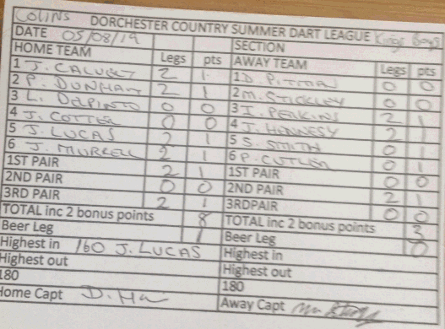 COLINS DORCHESTER COUNTRY SUMMER DART LEAGUE Kings Boys
DATE 05/08/19 SECTION
HOME TEAM Legs pts AWAY TEAM Legs pts
1 J. CALVERT 2 1 1 D. PITMAN 0 0
2 P. DUNHAM 2 1 2 M. STICKLEY 0 0
3 L. DELPINTO 0 0 3 I. PERKINS 2 1
4 J. COTTER 0 0 4 J. HENNESY 2 1
5 J. LUCAS 2 1 5 S. SMITH 0 1
6 J. MURRELL 2 1 6 P. CUTLER 0 1
1ST PAIR 2 1 1ST PAIR 0 0
2ND PAIR 0 0 2ND PAIR 2 1
3RD PAIR 2 1 3RDPAIR 0 0
TOTAL inc 2 bonus points 8 TOTAL inc 2 bonus points 3
Beer Leg 1 Beer Leg 0
Highest in 160 J. LUCAS Highest in
Highest out Highest out
180 180
Home Capt Away Capt